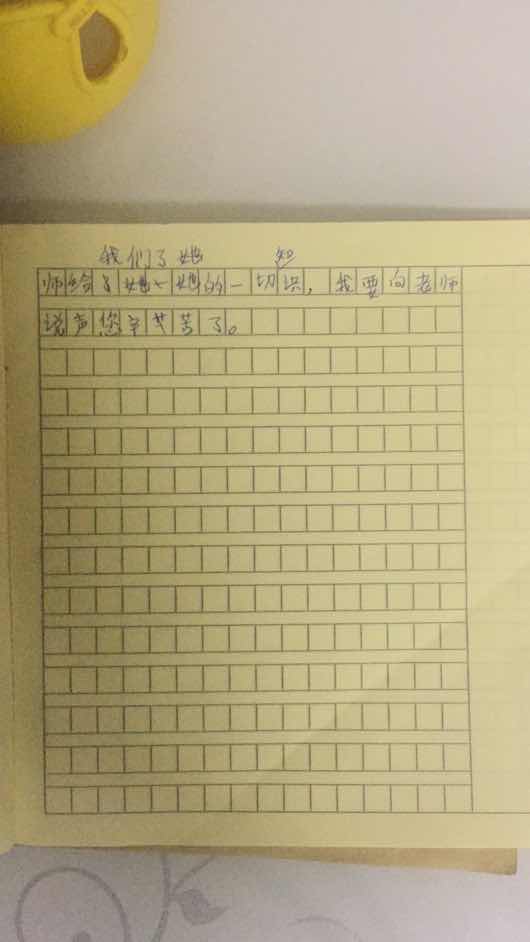 我们了她 知
师给了她一她的一切识，我要向老师
说声您辛苦苦了。